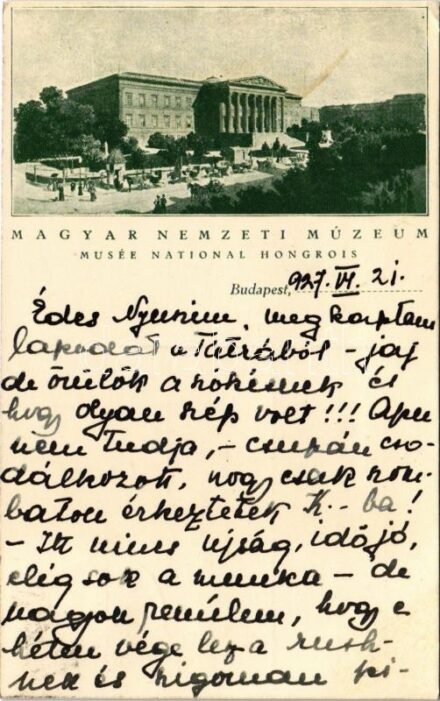 MAGYAR NEMZETI MÚZEUM
MUSÉE NATIONAL HONGROIS
Budapest, 927. VI. 21.
Édes Nyuszim, meg kaptam
lapodat a Tátrából – jaj
de örülök a szökésnek és
hogy olyan szép volt!!! Apu
nem tudja, – csupán cso-
dálkozott, hogy csak szom-
baton érkeztetek K.-ba!
– Itt nincs ujság, idő jó,
elég sok a munka – de
nagyon remélem, hogy e
héten vége lez a
nek és szigoruan pi-